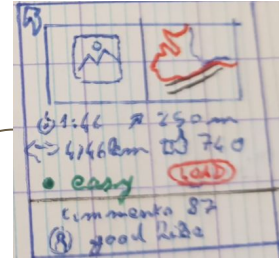 1:46 250m
4,46km 740
easy LOAD
comments 87
good